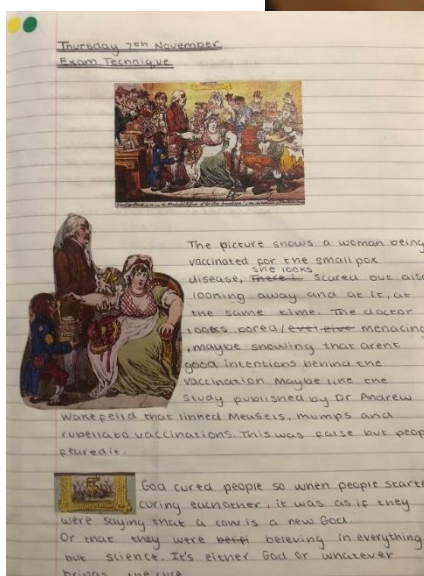 Thursday 7th November
Exam Technique
The picture shows a woman being
vaccinated for the small pox
disease, There i she looks scared but also
looking away and at it, at
the same time. The doctor
looks bored/ menacing
, maybe showing that arent
good intentions behind the
vaccination Maybe like the
study published by Dr Andrew
Wakefeild that linked Measels, mumps and
rubella to vaccinations. This was false but peop
feared it.
God cured people so when people starte
curing eachother, it was as if they
were saying that a cow is a new God.
Or that they were beleving in everything
but science. It's either God or whatever
brings the